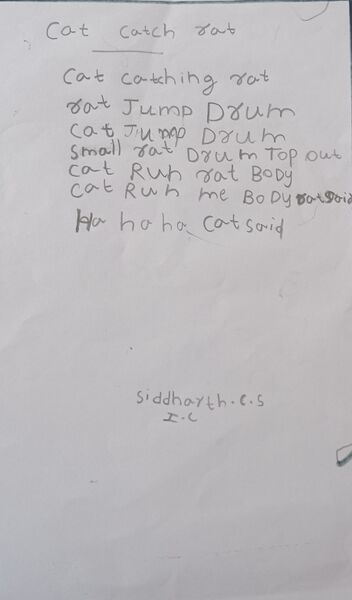 Cat catch rat
Cat catching rat
rat Jump Drum
Cat Jump Drum
Small rat Drum Top out
Cat Run rat BoDy
Cat Run me BoDy rat Said
Ha ha ha Cat said
Siddharth.C.S
I.C